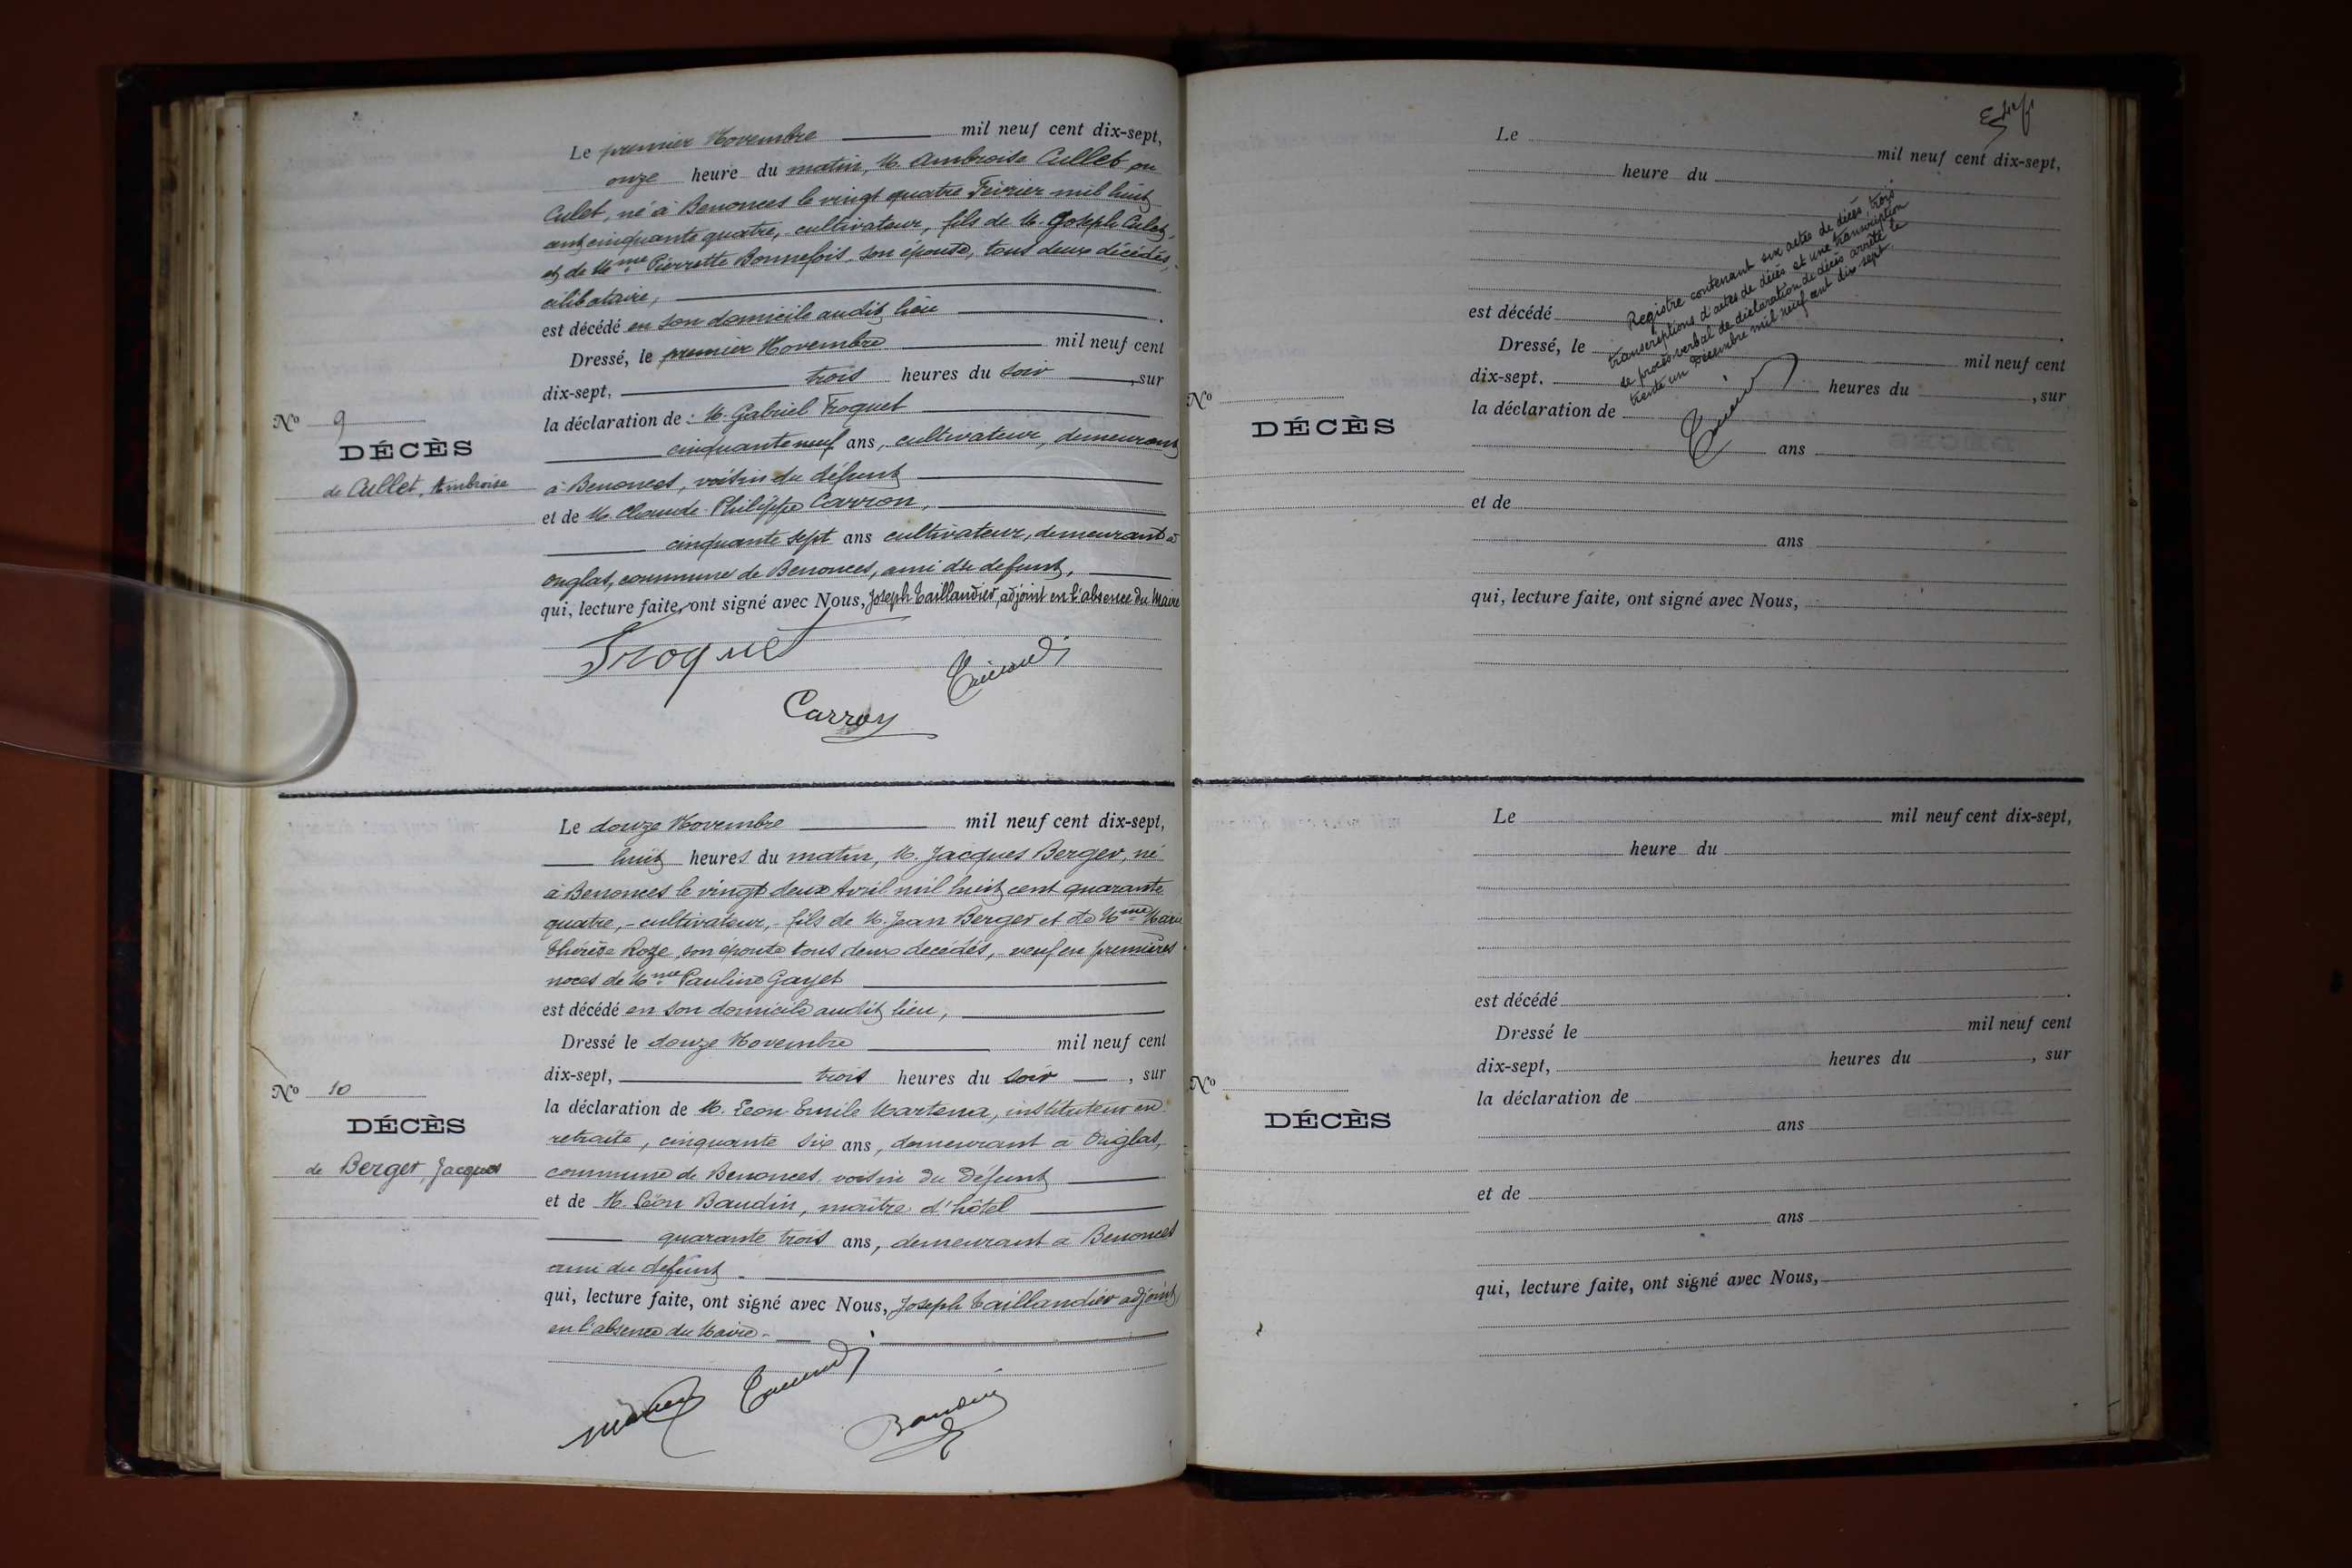 Le premier Novembre mil neuf cent dix-sept,
onze heure du matin, M. Ambroise Cullet ou
Culet, né à Benonces le vingt quatre Février mil huit
cent cinquante quatre, - cultivateur, fils de M. Joseph Culet,
et de Mme Pierrette Bonnefois son épouse, tous deux décédés,
célibataire,
est décédé en son domicile audit lieu
Dressé, le premier Novembre mil neuf cent
dix-sept, trois heures du soir, sur
la déclaration de : M. Gabriel Froquet
cinquante neuf ans, cultivateur, demeurant
à Benonces, voisin du défunt
et de M. Claude Philippe Carron,
cinquante sept ans cultivateur, demeurant à
Onglas, commune de Benonces, ami du defunt,
qui, lecture faite, ont signé avec Nous, Joseph Taillandier, adjoint en l'absence du Maire
Froquet
Carron
No 9
DÉCÈS
de Cullet, Ambroise
Le douze Novembre mil neuf cent dix-sept,
huit heures du matin, M. Jacques Berger, né
à Benonces le vingt deux Avril mil huit cent quarante
quatre, - cultivateur, - fils de M. Jean Berger et de Mme Marie
Thérèse Roze, son épouse tous deux decédés, - veuf en premières
noces de Mme Pauline Gayet
est décédé en son domicile audit lieu,
Dressé le douze Novembre mil neuf cent
dix-sept, trois heures du soir, sur
la déclaration de M. Leon Emile Martena, instituteur en
retraite, cinquante six ans, demeurant à Onglas,
commune de Benonces, voisin du Défunt
et de M. Léon Baudin, maître d'hôtel
quarante trois ans, demeurant à Benonces
ami du defunt
qui, lecture faite, ont signé avec Nous, Joseph Taillandier adjoint,
en l'absence du Maire. -
Baudin
No 10
DÉCÈS
de Berger, Jacques
Le mil neuf cent dix-sept,
heure du
est décédé
Dressé, le mil neuf cent
dix-sept, heures du , sur
la déclaration de
ans
et de
ans
qui, lecture faite, ont signé avec Nous,
No
DÉCÈS
Registre contenant six actes de décès, trois
transcriptions d'actes de décès et une transcription
de procès verbal de déclaration de décès arrêté le
trente un Décembre mil neuf cent dix sept.
Le mil neuf cent dix-sept,
heure du
est décédé
Dressé le mil neuf cent
dix-sept, heures du , sur
la déclaration de
ans
et de
ans
qui, lecture faite, ont signé avec Nous,
No
DÉCÈS